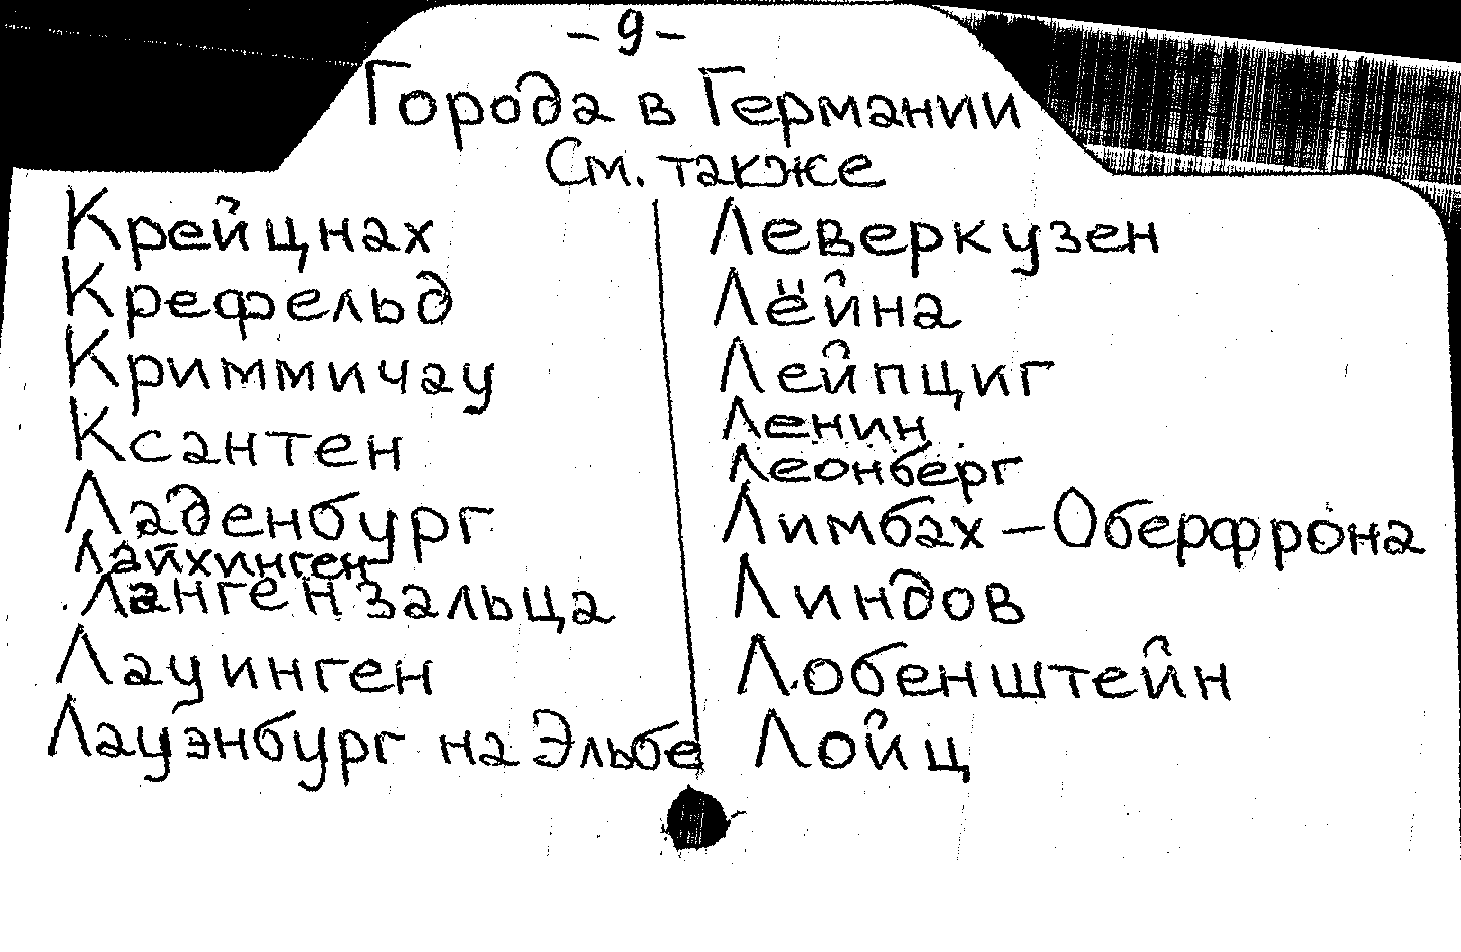 - 9 -
Города в Германии
См. также
Крейцнах
Крефельд
Криммичау
Ксантен
Ладенбург
Лайхинген
Лангензальца
Лауинген
Лауэнбург на Эльбе
Леверкузен
Лёйна
Лейпциг
Ленин
Леонберг
Лимбах - Оберфрона
Линдов
Лобенштейн
Лойц